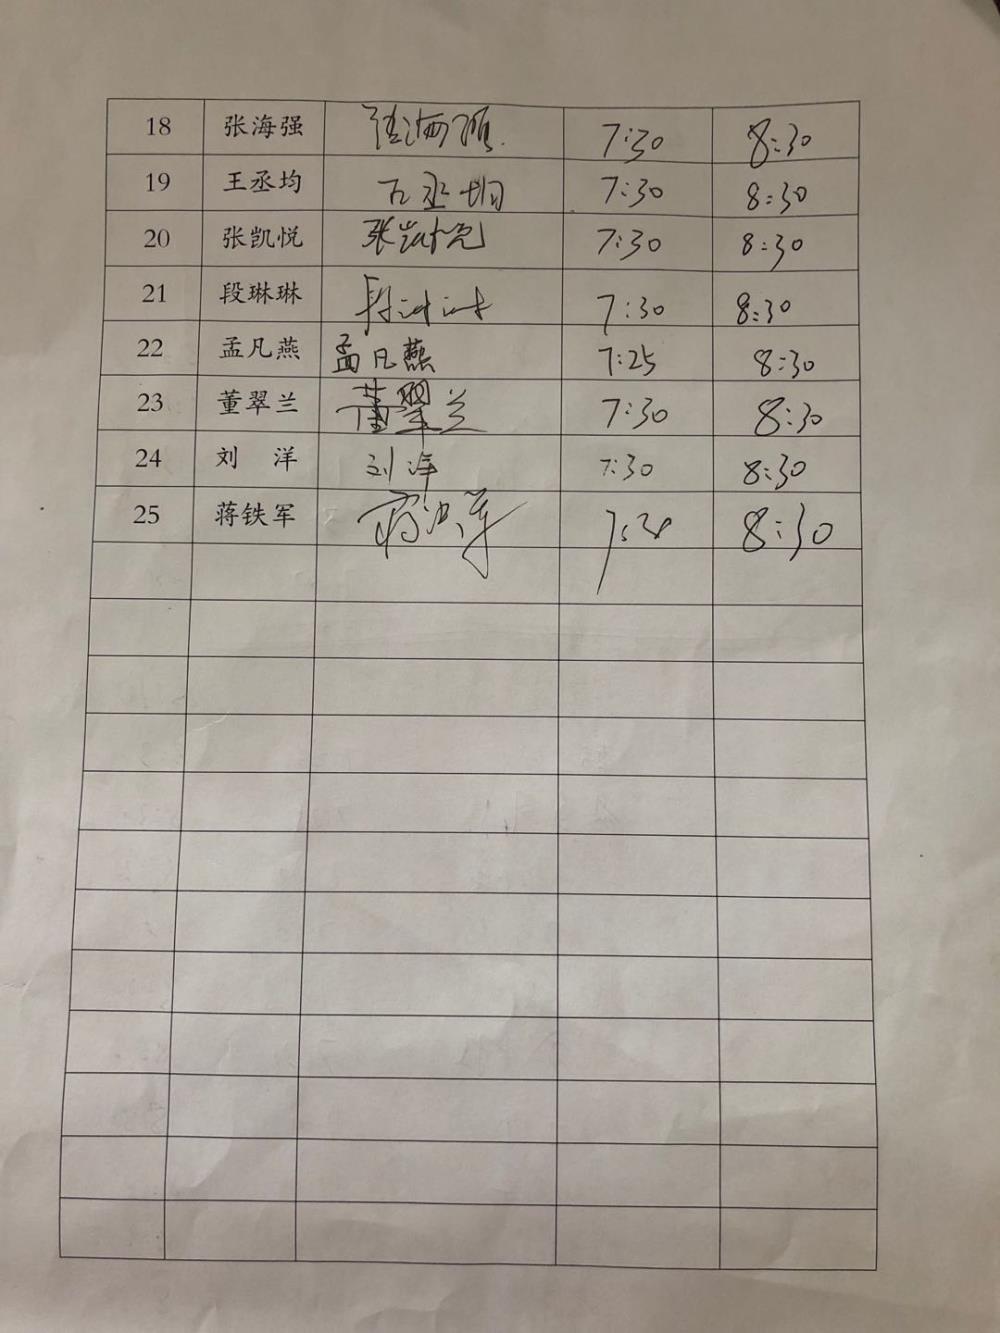 18 张海强 张海强 7:30 8:30
19 王丞均 王丞均 7:30 8:30
20 张凯悦 张凯悦 7:30 8:30
21 段琳琳 段琳琳 7:30 8:30
22 孟凡燕 孟凡燕 7:25 8:30
23 董翠兰 董翠兰 7:30 8:30
24 刘 洋 刘洋 7:30 8:30
25 蒋铁军 蒋铁军 8:30